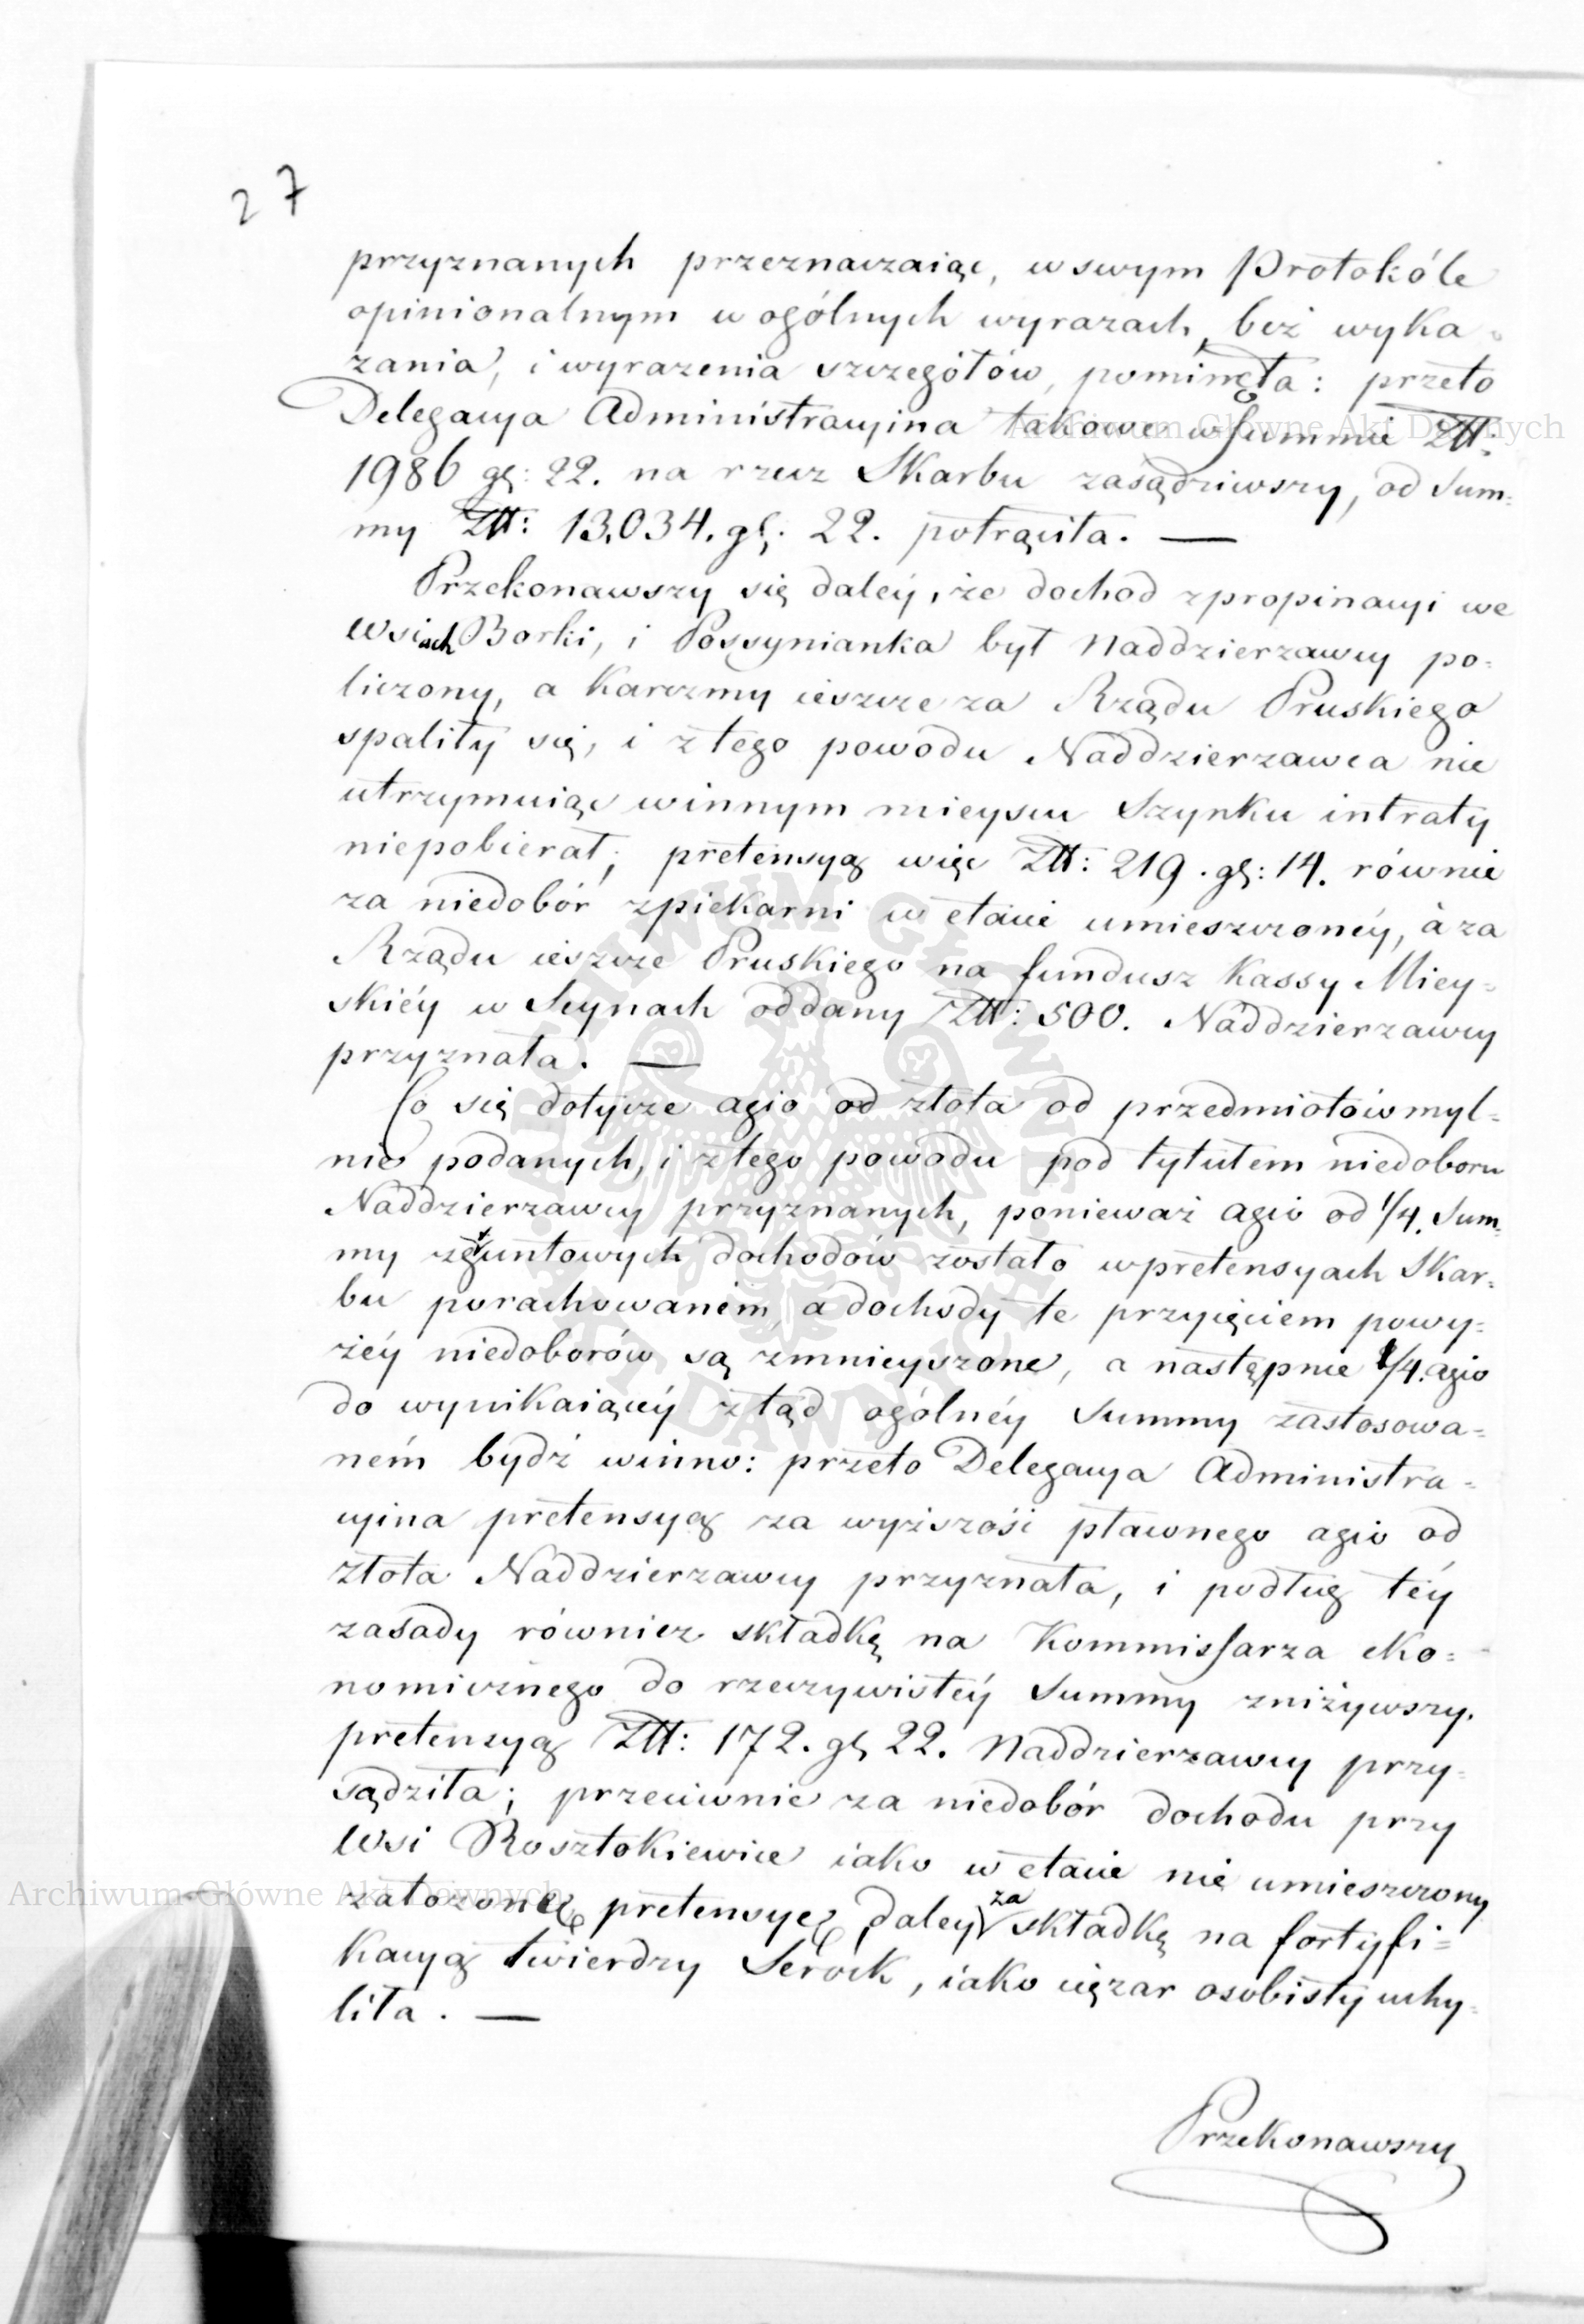 27
przyznanych przeznaczaiąc, w swym Protokóle
opinionalnym w ogólnych wyrazach, bez wyka-
zania, i wyrazenia szczegółów, pominęła: przeto
Delegacya Administracyina takowe w Summie Złł:
1986 gl: 22. na rzecz Skarbu zasądziwszy, od Sum-
my Złł: 13,034. gl: 22. potrąciła. —
Przekonawszy się daléy, że dochod z propinacyi we
Wsiach Borki, i Possynianka był Naddzierzawcy po-
liczony, a Karczmy ieszcze za Rządu Pruskiego
spaliły się, i z tego powodu Naddzierzawca nie
utrzymuiąc w innym mieyscu Szynku intraty
niepobierał; pretensyą więc Złł: 219. gl: 14. równie
za niedobór z piekarni w etacie umieszczonéy, à za
Rządu ieszcze Pruskiego na fundusz Kassy Miey-
skiéy w Seynach oddany Złł: 500. Naddzierzawcy
przyznała. —
Co się dotycze agio od złota od przedmiotów myl-
nie podanych, i z tego powodu pod tytułem niedoboru
Naddzierzawcy przyznanych, ponieważ agio od 1/4. Sum-
my zgruntowych dochodów zostało w pretensyach Skar-
bu porachowaném, a dochody te przyięciem powy-
żéy niedoborów są zmnieyszone, a następnie 1/4. agio
do wynikaiącéy ztąd ogólnéy Summy zastosowa-
ném bydź winno: przeto Delegacya Administra-
cyina pretensyą za wyższość pławnego agio od
złota Naddzierzawcy przyznała, i podług téy
zasady równiez składkę na Kommissarza eko-
nomicznego do rzeczywistéy Summy zniżywszy.
pretensyą Złł: 172. gl 22. Naddzierzawcy przy-
sądziła; przeciwnie za niedobór dochodu przy
Wsi Rosztokiewice iako w etacie nie umieszczony
załozoną pretensyę, daley za składkę na fortyfi-
kacyą twierdzy Serock, iako cięzar osobisty uchy-
liła. —
Przekonawszy
Archiwum Główne Akt Dawnych
Archiwum Główne Akt Dawnych
ARCHIWUM GŁÓWNE AKT DAWNYCH